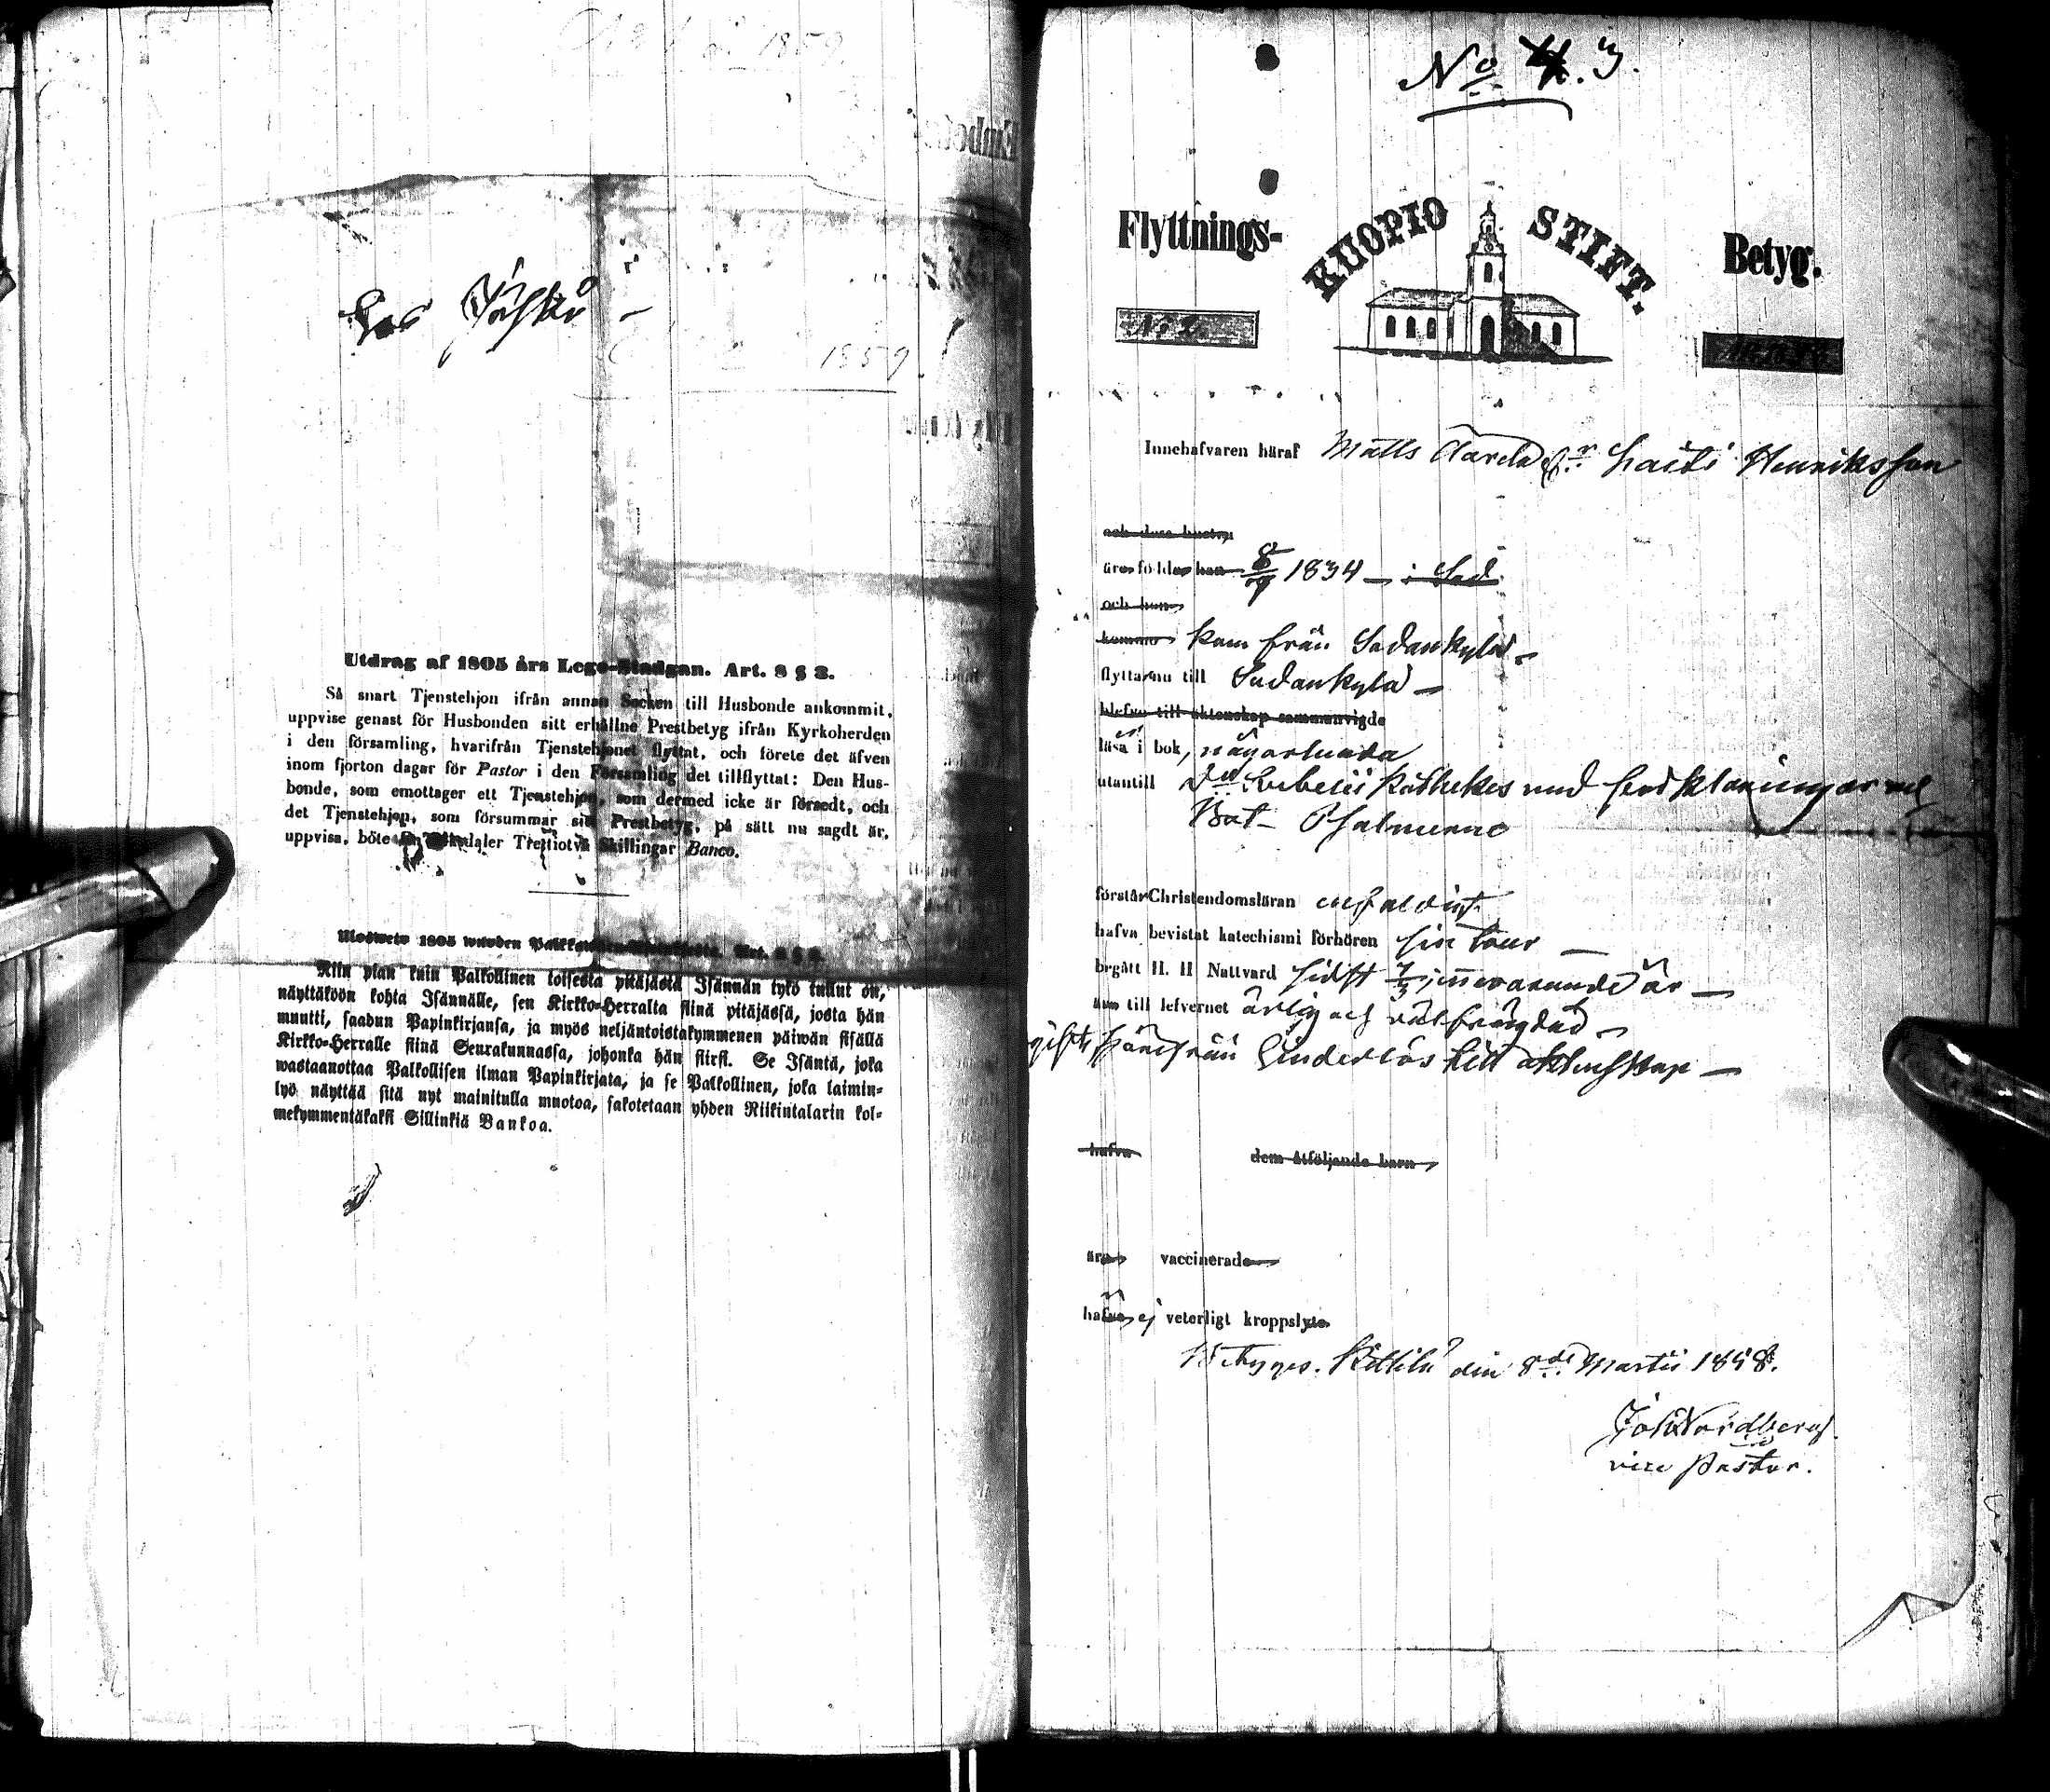 1859
Hos Jäskö –
1859
Utdrag af 1805 års Lego-Stadgan. Art. 8 § 3.
Så snart Tjenstehjon ifrån annan Socken till Husbonde ankommit,
uppvise genast för Husbonden sitt erhållne Prestbetyg ifrån Kyrkoherden
i den församling, hvarifrån Tjenstehjonet flyttat, och förete det äfven
inom fjorton dagar för Pastor i den Församling det tillflyttat: Den Hus-
bonde, som emottager ett Tjenstehjon, som dermed icke är försedt, och
det Tjenstehjon, som försummar sitt Prestbetyg, på sätt nu sagdt är,
uppvisa, böte Riksdaler Trettiotvå Skillingar Banco.
1805 wuoden
Niin pian kuin Palkollinen toisesta pitäjästä Isännän tykö tullut on,
näyttäköön kohta Isännälle, sen Kirkko-Herralta siinä pitäjässä, josta hän
muutti, saadun Papinkirjansa, ja myös neljäntoistakymmenen päiwän sisällä
Kirkko-Herralle siinä Seurakunnassa, johonka hän siirsi. Se Isäntä, joka
wastaanottaa Palkollisen ilman Papinkirjata, ja se Palkollinen, joka laimin-
lyö näyttää sitä nyt mainitulla muotoa, sakotetaan yhden Riikintalarin kol-
mekymmentäkaksi Sillinkiä Bankoa.
No 4. 3.
Flyttnings- KUOPIO STIFT. Betyg.
Innehafvaren häraf Matts Henriksson
och dess hustru
äro födde han 8/9 1834 – i Sod.
och hon
kommo kom från Sodankylä –
flytta nu till Sodankylä –
blefvo till äktenskap sammanvigde
läsa i bok, någorlunda
utantill Svebelii Kathekes med förklaringar och
Bot Psalmerne
förstå Christendomsläran enfaldigt
hafva bevistat katechismi förhören
begått H. H Nattvard sidst innevarande år –
äro till lefvernet ärlig och välfrägdad –
gifte härifrån hinderlös till äktenskap –
hafva dem åtföljande barn
äro vaccinerade
hafva ej veterligt kroppslyte
Betygas. Kittilä den 8de Martii 1858.
Joh Nordberg
vice Pastor.